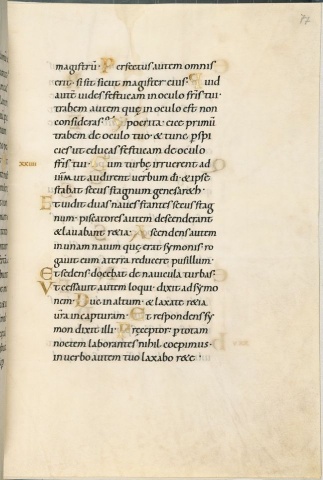 87
magistrū. Perfectus autem omnis
erit. si sit sicut magister eius. Quid
autē uides festucam in oculo frīs tui.
trabem autem quę in oculo est non
consideras. Ypocrita eice primū
trabem de oculo tuo. & tunc p̄spi
cies ut educas festucam de oculo
frīs tui. Cum turbę irruerent ad
iħm ut audirent uerbum dī. & ipse
stabat secus stagnum genesareth.
Et uidit duas naues stantes secus stag
num. piscatores autem descenderant
& lauabant retia. Ascendens autem
in unam nauim quę erat symonis. ro
gauit eum a terra reducere pusillum.
Et sedens docebat de nauicula turbas.
Vt cessauit autem loqui. dixit ad symo
nem. Duc in altum. & laxate retia
ur̄a in capturam. Et respondens sy
mon dixit illi. Pręceptor. p totam
noctem laborantes nihil coepimus.
in uerbo autem tuo laxabo rete.